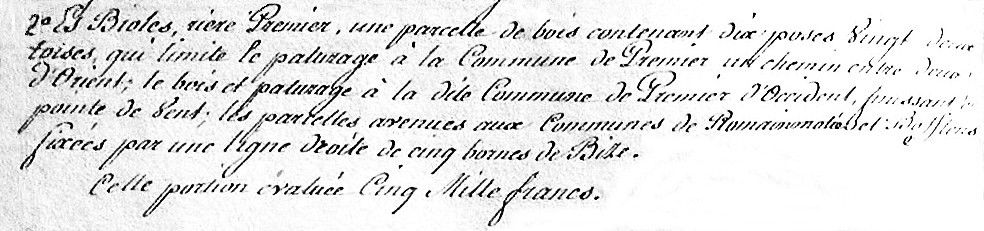 2º Es Bioles, riere Premier, une parcelle de bois contenant dix poses vingt deux
toises, qui limite le paturage à la Commune de Premier un chemin entre deux
d'Orient; le bois et paturage à la dite Commune de Premier d'Occident, finissant
pointe de Vent; les parcelles avenues aux Communes de Romainmotier et
fixées par une ligne droite de cinq bornes de Bize.
Cette portion évaluée Cinq Mille francs.